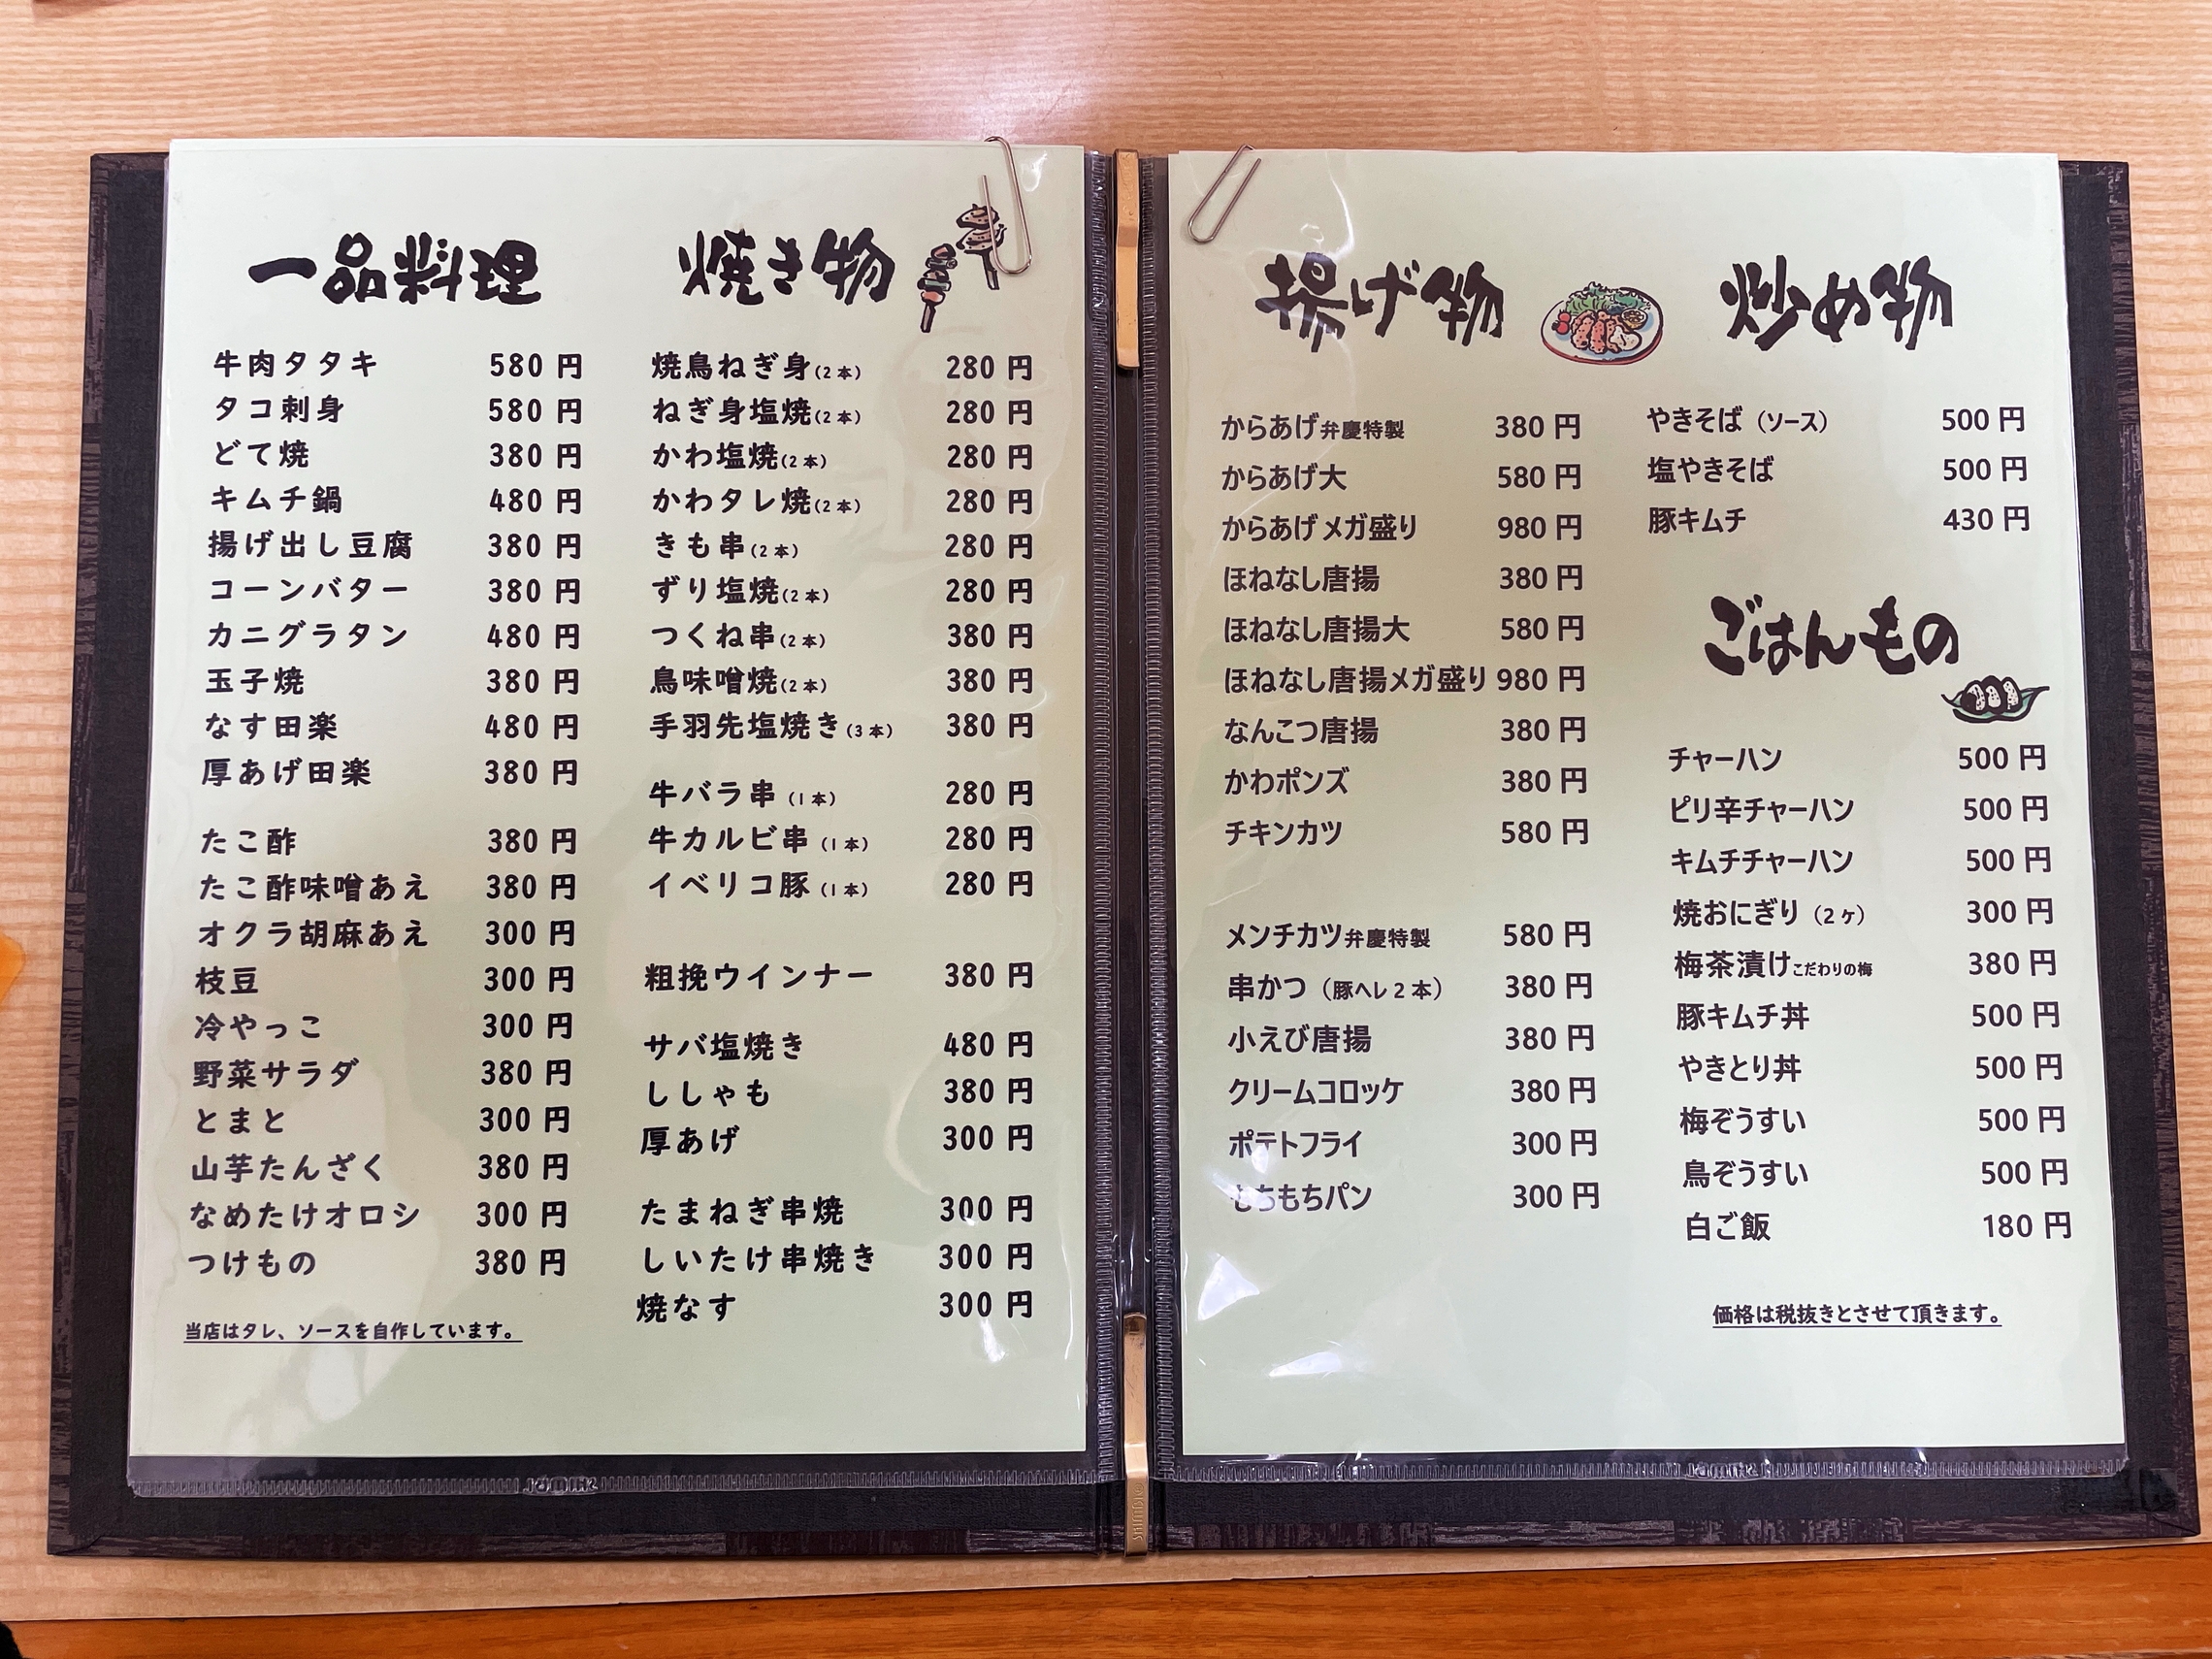 一品料理
牛肉タタキ 580 円
タコ刺身 580 円
どて焼 380 円
キムチ鍋 480 円
揚げ出し豆腐 380 円
コーンバター 380 円
カニグラタン 480 円
玉子焼 380 円
なす田楽 480 円
厚あげ田楽 380 円
たこ酢 380 円
たこ酢味噌あえ 380 円
オクラ胡麻あえ 300 円
枝豆 300 円
冷やっこ 300 円
野菜サラダ 380 円
とまと 300 円
山芋たんざく 380 円
なめたけオロシ 300 円
つけもの 380 円
当店はタレ、ソースを自作しています。
焼き物
焼鳥ねぎ身(2本) 280 円
ねぎ身塩焼(2本) 280 円
かわ塩焼(2本) 280 円
かわタレ焼(2本) 280 円
きも串(2本) 280 円
ずり塩焼(2本) 280 円
つくね串(2本) 380 円
鳥味噌焼(2本) 380 円
手羽先塩焼き(3本) 380 円
牛バラ串(1本) 280 円
牛カルビ串(1本) 280 円
イベリコ豚(1本) 280 円
粗挽ウインナー 380 円
サバ塩焼き 480 円
ししゃも 380 円
厚あげ 300 円
たまねぎ串焼 300 円
しいたけ串焼き 300 円
焼なす 300 円
揚げ物
からあげ弁慶特製 380 円
からあげ大 580 円
からあげメガ盛り 980 円
ほねなし唐揚 380 円
ほねなし唐揚大 580 円
ほねなし唐揚メガ盛り 980 円
なんこつ唐揚 380 円
かわポンズ 380 円
チキンカツ 580 円
メンチカツ弁慶特製 580 円
串かつ（豚ヘレ2本） 380 円
小えび唐揚 380 円
クリームコロッケ 380 円
ポテトフライ 300 円
もちもちパン 300 円
炒め物
やきそば（ソース） 500 円
塩やきそば 500 円
豚キムチ 430 円
ごはんもの
チャーハン 500 円
ピリ辛チャーハン 500 円
キムチチャーハン 500 円
焼おにぎり（2ヶ） 300 円
梅茶漬けこだわりの梅 380 円
豚キムチ丼 500 円
やきとり丼 500 円
梅ぞうすい 500 円
鳥ぞうすい 500 円
白ご飯 180 円
価格は税抜きとさせて頂きます。